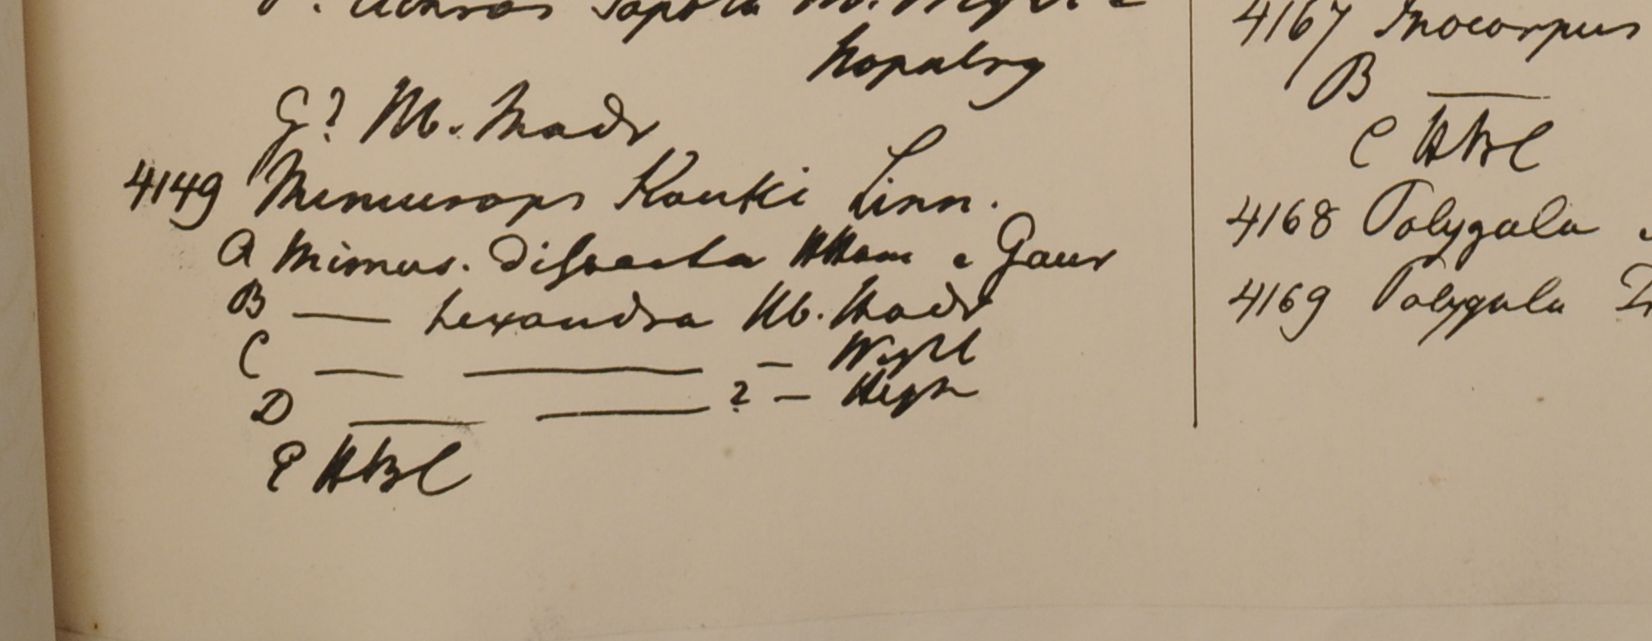 F. Achras Sapota Hb. Wight e
Nopalry
G? Hb. Madr
4149 Mimusops Kauki Linn.
A Mimus. dissecta HHam e Gaur
B — hexandra Hb. Madr
C — — – Wight
D — — ? – Heyn
E HBC
4167 Inocarpus
B —
C HBC
4168 Polygala
4169 Polygala